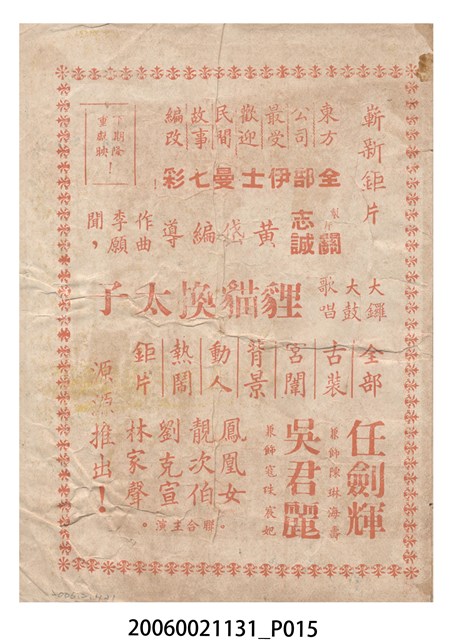 嶄新鉅片
東方公司最受歡迎民間故事編改
下期隆重獻映！
全部伊士曼七彩
製片 關志誠
黃岱編導
作曲 李願聞，
大鑼大鼓歌唱
貍貓換太子
全部古裝宮闈背景動人熱鬧鉅片
源源推出！
任劍輝
兼飾陳琳海壽
吳君麗
兼飾寇珠宸妃
鳳凰女
靚次伯
劉克宣
林家聲
。聯合主演。
20060021131_P015